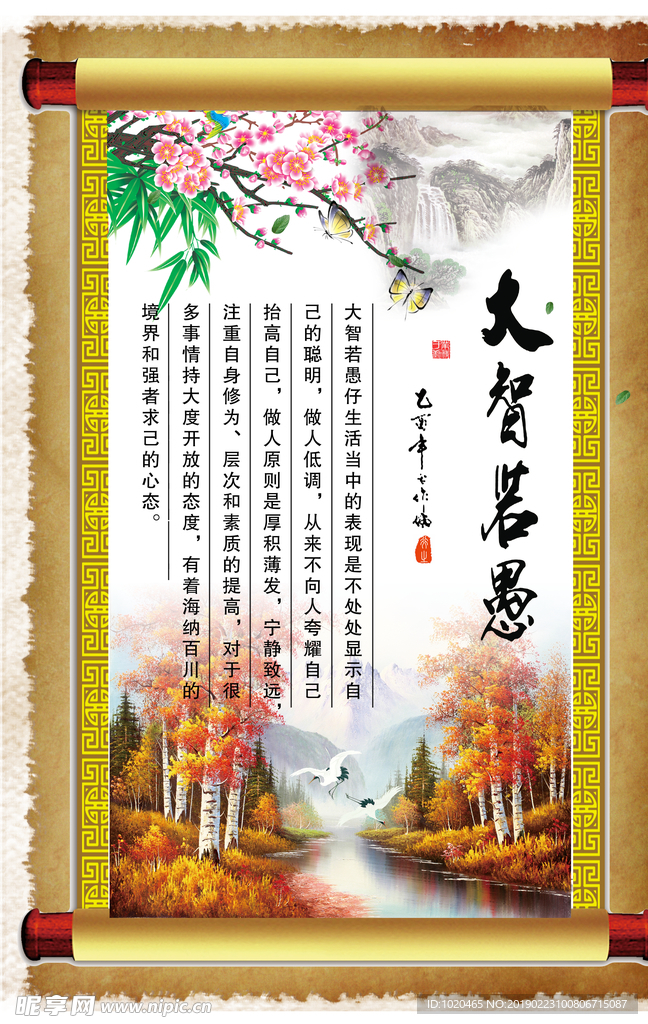 大智若愚
乙酉年
大智若愚仔生活当中的表现是不处处显示自
己的聪明，做人低调，从来不向人夸耀自己
抬高自己，做人原则是厚积薄发，宁静致远，
注重自身修为、层次和素质的提高，对于很
多事情持大度开放的态度，有着海纳百川的
境界和强者求己的心态。
昵享网 www.nipic.cn
ID:1020465 NO:20190223100806715087